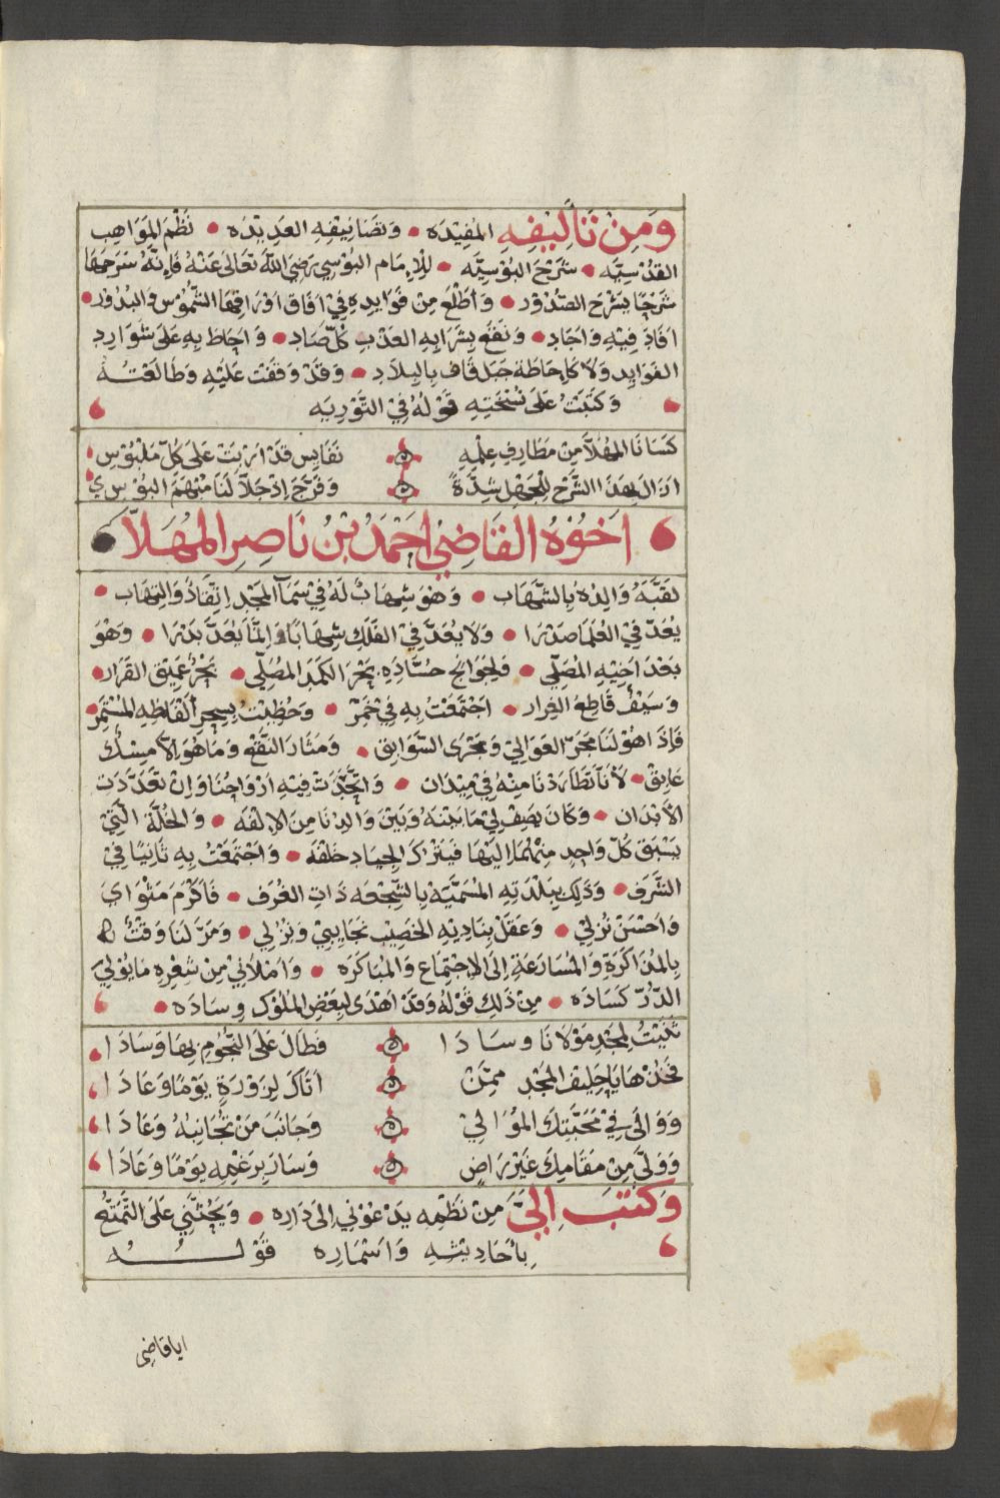 وَمِنْ تَآلِيفِهِ المُفِيْدَه • وَتَصَانِيْفِهِ العَدِيْدَه • نَظْمُ المَوَاهِب
القُدْسِيَّه • شَرْحَ البُوْسِيَّه • لِلْإِمَام البُوْسِي رَضِيَ اللهُ تَعَالَىٰ عَنْهُ فَإِنَّهُ شَرَحَهَا
شَرْحًا يَشْرَحَ الصُّدُوْر • وَأطْلَعَ مِنْ فَوَايِدِهِ فِيْ آفَاقِ أوْرَاقِهَا الشُّمُوْسَ وَالبُدُوْر •
أفَادَ فِيْهِ وَأجَاد • وَنَقَعَ بِشَرَابِهِ العَذْبِ كُلَّ صَاد • وَأحَاطَ بِهِ عَلَىٰ شَوَارِدِ
الفَوَايِد وَلَا كَإِحَاطَة جَبَل قَاف بِالبِلَاد • وَقَدْ وَقَفْتَ عَلَيْهِ وَطَالَعْتُهُ
• وَكَتَبْتُ عَلَىٰ نُسْخَتِهِ قَوْلُهُ فِيْ التَّوْرِيَه
كَسَانَا المُهَلَّا مِنْ مَطَارِفِ عِلْمِهِ نَفَايِس قَدْ أرْبَتْ عَلَىٰ كُلِّ مَلْبُوْسِ
أزَالَ بِهَذَا الشَّرْحِ لِلْجَهْلِ شِدَّةً وَفَرَّجَ إذْ جَلَّا لَنَا مُبْهَمَ البُوْسِي
أخُوْهُ القَاضِيْ أحْمَدُ بْنُ نَاصِر المُهَلَّا
لَقَّبَهُ وَالِدُهُ بِالشَّهَاب • وَهُوَ شِهَابٌ لَهُ فِيْ سَمَآ المَجْدِ اتِّقَادٌ وَالتِهَاب •
يُعَدُّ فِيْ العُلَمَا صَدْرًا • وَلَا يُعَدُّ فِيْ الفَلَكِ شِهَابًا وَإنَّمَا يُعَدُّ بَدْرًا • وَهُوَ
بَعْدَ أخِيْهِ المُصَلِّي • وَلِجَوَانِحِ حُسَّادِهِ بِحَرِّ الكَمَدِ المُصْلِّي • بَحْرٌ عَمِيْق القَرَار •
وَسَيْفٌ قَاطِعُ الغِرَار • اجْتَمَعْتُ بِهِ فِيْ خَمِرْ • وَحُظِيْتُ بِسِحْرِ ألْفَاظِهِ المُسْتَمِر •
فَإذَا هُوْ لَنَا مَجَرّ العَوَالِيْ وَمَجْرَى السَّوَابِق • وَمَثَارَ النَّقْعِ وَمَا هُوَ إلَّا مِسْكٌ
عَابِقٌ • لأنَّا تَطَارَدْنَا مِنْهُ فِيْ مِيْدَان • وَاتَّحَدَتْ فِيْهِ أرْوَاحُنَا وَإنْ تَعَدَّدَتِ
الأبْدَان • وَكَانَ يَصِفُ لِيْ مَا بَيْنَهُ وَبَيْنَ وَالِدِنَا مِنَ الألْفَه • وَالخُلَّة الَّتِيْ
يَسْبَق كُلّ وَاحِدٍ مِنْهُمَا إلَيْهَا فَيَتْرُكَ الجِيَاد خَلْفَه • وَاجْتَمَعْتُ بِهِ ثَانِيًا فِيْ
الشَّرَف • وَذَلِكَ بِبَلْدَتِهِ المُسَمَّيَةِ بِالشِّجْعَه ذَاتِ الغُرَف • فَأكْرَمَ مَثْوَايَ
وَأحْسَنَ نُزُلِيْ • وَعَقَلَ بِنَادِيْهِ الخَصِيْب نَجَايِبِيْ وَبُزُلِي • وَمَرَّ لَنَا وَقْتٌ
بِالمُذَاكَرَةِ وَالمُسَارَعَةِ إلَى الاجْتِمَاعِ وَالمُبَاكَرَه • وَأمْلَانِيْ مِنْ شِعْرِهِ مَا يُوْلِيْ
الدُّرّ كَسَادَه • مِنْ ذَلِكَ قَوْلُهُ وَقَدْ أهْدَى لِبَعْضِ المُلُوْكِ وِسَادَه •
ثُنِيْتُ لِمَجْدِ مَوْلَانَا وِسَادَا فَطَالَ عَلَى النُّجُوْمِ بِهَا وَسَادَا •
فَخُذْهَا يَا حَلِيْفَ المَجْدِ مِمَّنْ أتَاكَ لِزَوْرَةٍ يَوْمًا وَعَادَا
وَوَالَىٰ فِيْ مَحَبَّتِكَ المُوَالِيْ وَجَانَبَ مَنْ تُجَانِبُهُ وَعَادَا
وَوَلَّىٰ مِنْ مَقَامِكَ غَيْرَ رَاضٍ وَسَارَ بِرَغْمِهِ يَوْمًا وَعَادَا
وَكَتَبَ إلَيَّ مِنْ نَظْمِهِ يَدْعُوْنِي إلَىٰ دَارِه • وَيَحُثُّنِي عَلَى التَّمَتُّعِ
بِأحَادِيْثِهِ وَأسْمَارِه قَوْلُهُ
أيا قاضِي